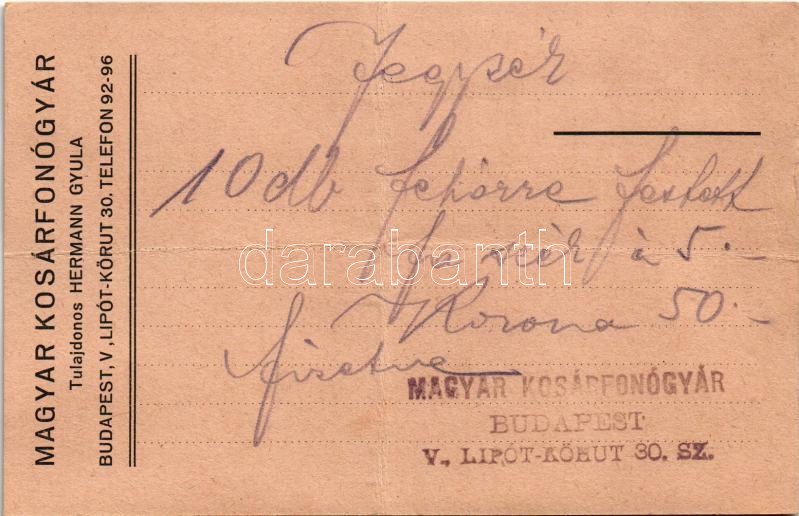 MAGYAR KOSÁRFONÓGYÁR
Tulajdonos HERMANN GYULA
BUDAPEST, V., LIPÓT-KÖRUT 30. TELEFON 92-96
Jegyzék
10 db fehérre festett
à 5.-
Korona 50.-
fizetve
darabanth
MAGYAR KOSÁRFONÓGYÁR
BUDAPEST
V., LIPÓT-KÖRUT 30. SZ.